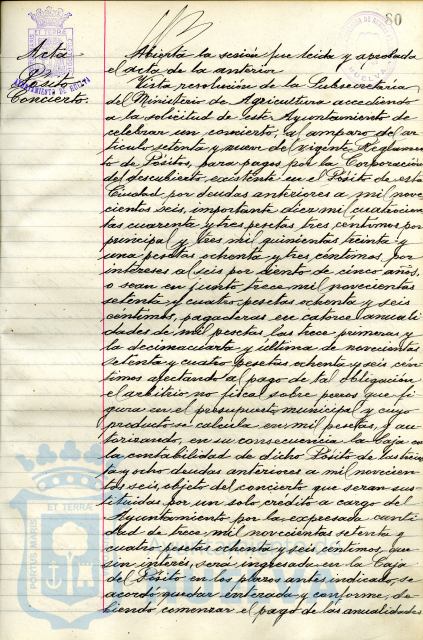 80
Acta
Pósito
Concierto.
AYUNTAMIENTO DE HUELVA
HUELVA
Abierta la sesión fue leida y aprobada
el acta de la anterior
Vista resolución de la Subsecretaría
del Ministerio de Agricultura accediendo
a la solicitud de este Ayuntamiento de
celebrar un concierto, al amparo del ar-
tículo setenta y nueve del vigente Reglamen-
to de Pósitos, para pagos por la Corporación
del descubierto existente en el Pósito de esta
Ciudad por deudas anteriores a mil nove-
cientos seis, importante diez mil cuatrocien-
tas cuarenta y tres pesetas tres céntimos por
principal y tres mil quinientas treinta y
una pesetas ochenta y tres céntimos, por
intereses al seis por ciento de cinco años,
o sean en junto trece mil novecientas
setenta y cuatro pesetas ochenta y seis
céntimos, pagaderas en catorce anuali-
dades de mil pesetas las trece primeras y
la decimacuarta y última de novecientas
setenta y cuatro pesetas ochenta y seis cén-
timos afectando al pago de tal obligación
el arbitrio no fiscal sobre perros que fi-
gura en el presupuesto municipal y cuyo
producto se calcula en mil pesetas, y au-
torizando, en su consecuencia la baja en
la contabilidad de dicho Pósito de
ta y ocho deudas anteriores a mil novecien-
tos seis, objeto del concierto que seran sus-
tituidas por un solo crédito a cargo del
Ayuntamiento por la expresada canti-
dad de trece mil novecientas setenta y
cuatro pesetas ochenta y seis céntimos, que
sin interés, será ingresada en la Caja
del Pósito en los plazos antes indicado, se
acordó quedar enterada y conforme, de-
biendo comenzar el pago de las anualidades
PORTUS MARIS ET TERRAE